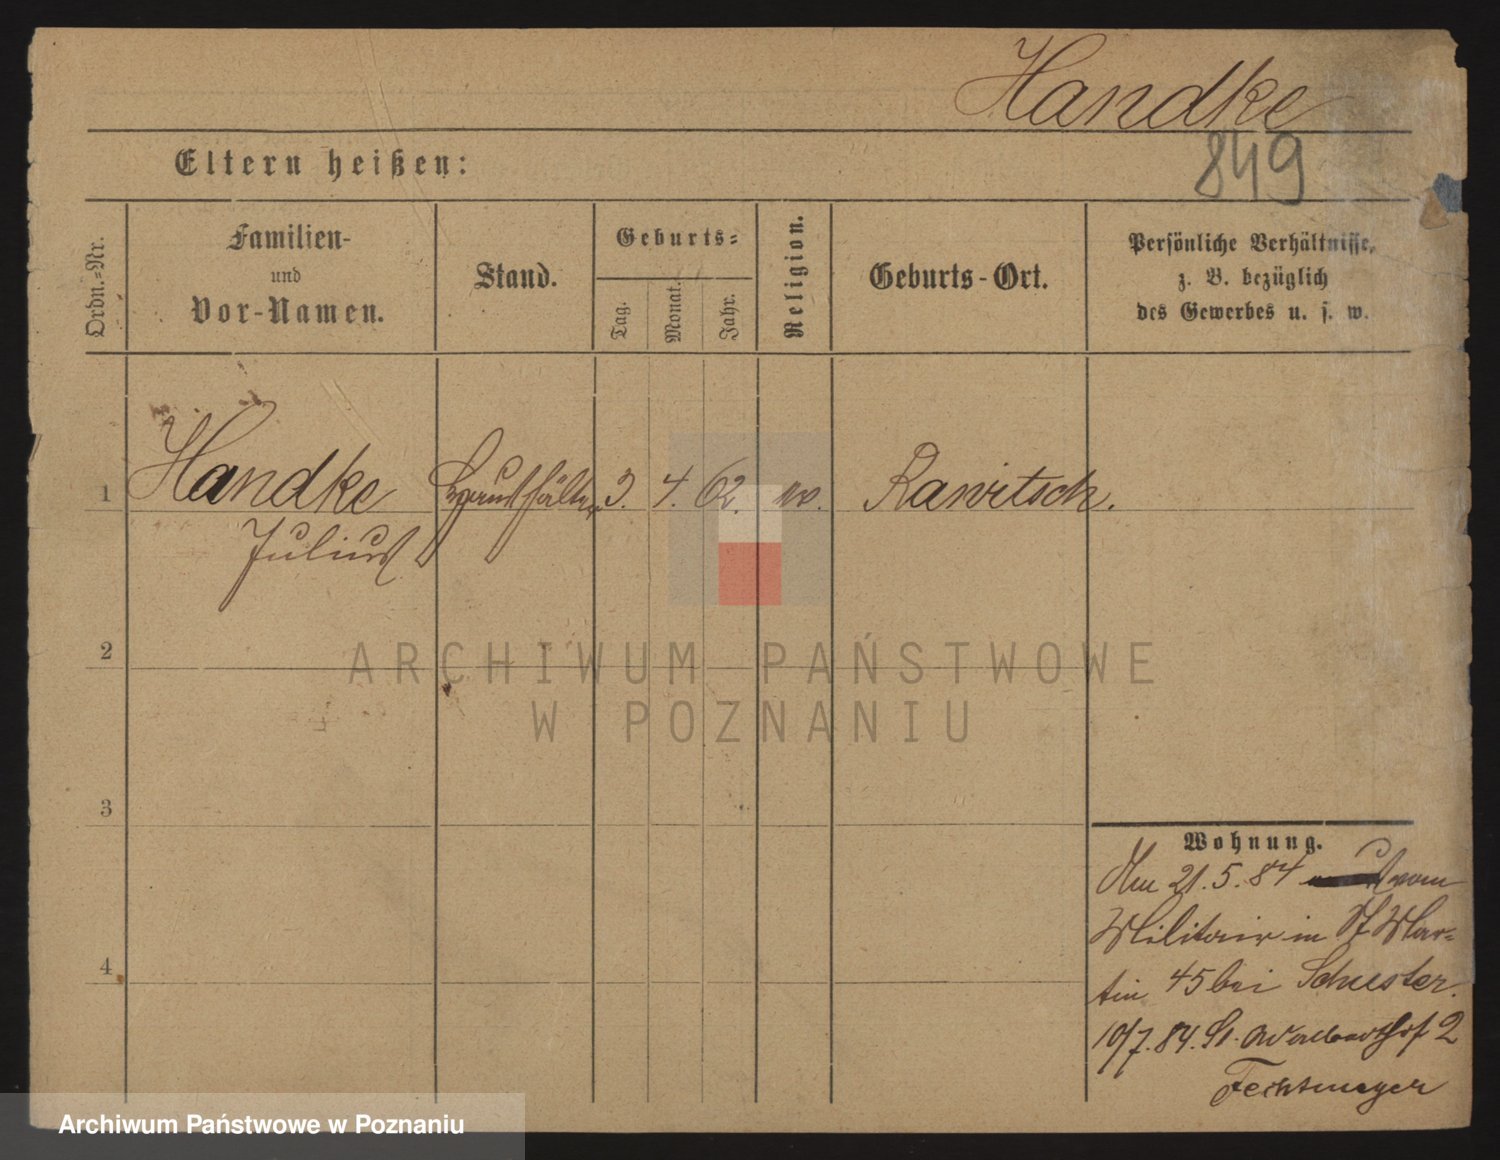 Handke
849
Eltern heißen:
Ordn.-Nr.
Familien-
und
Vor-Namen.
Stand.
Geburts-
Tag.
Monat.
Jahr.
Religion.
Geburts-Ort.
Persönliche Verhältnisse,
z. B. bezüglich
des Gewerbes u. s. w.
1 Handke Haushälter 3. 4. 62. Rawitsch.
Julius
2
ARCHIWUM PAŃSTWOWE
W POZNANIU
3
4
Wohnung.
Am 21.5.84 vom
Militair in St Mar-
tin 45 bei Schuster.
10/7.84. St. Adalberthof 2
Fechtmeyer
Archiwum Państwowe w Poznaniu